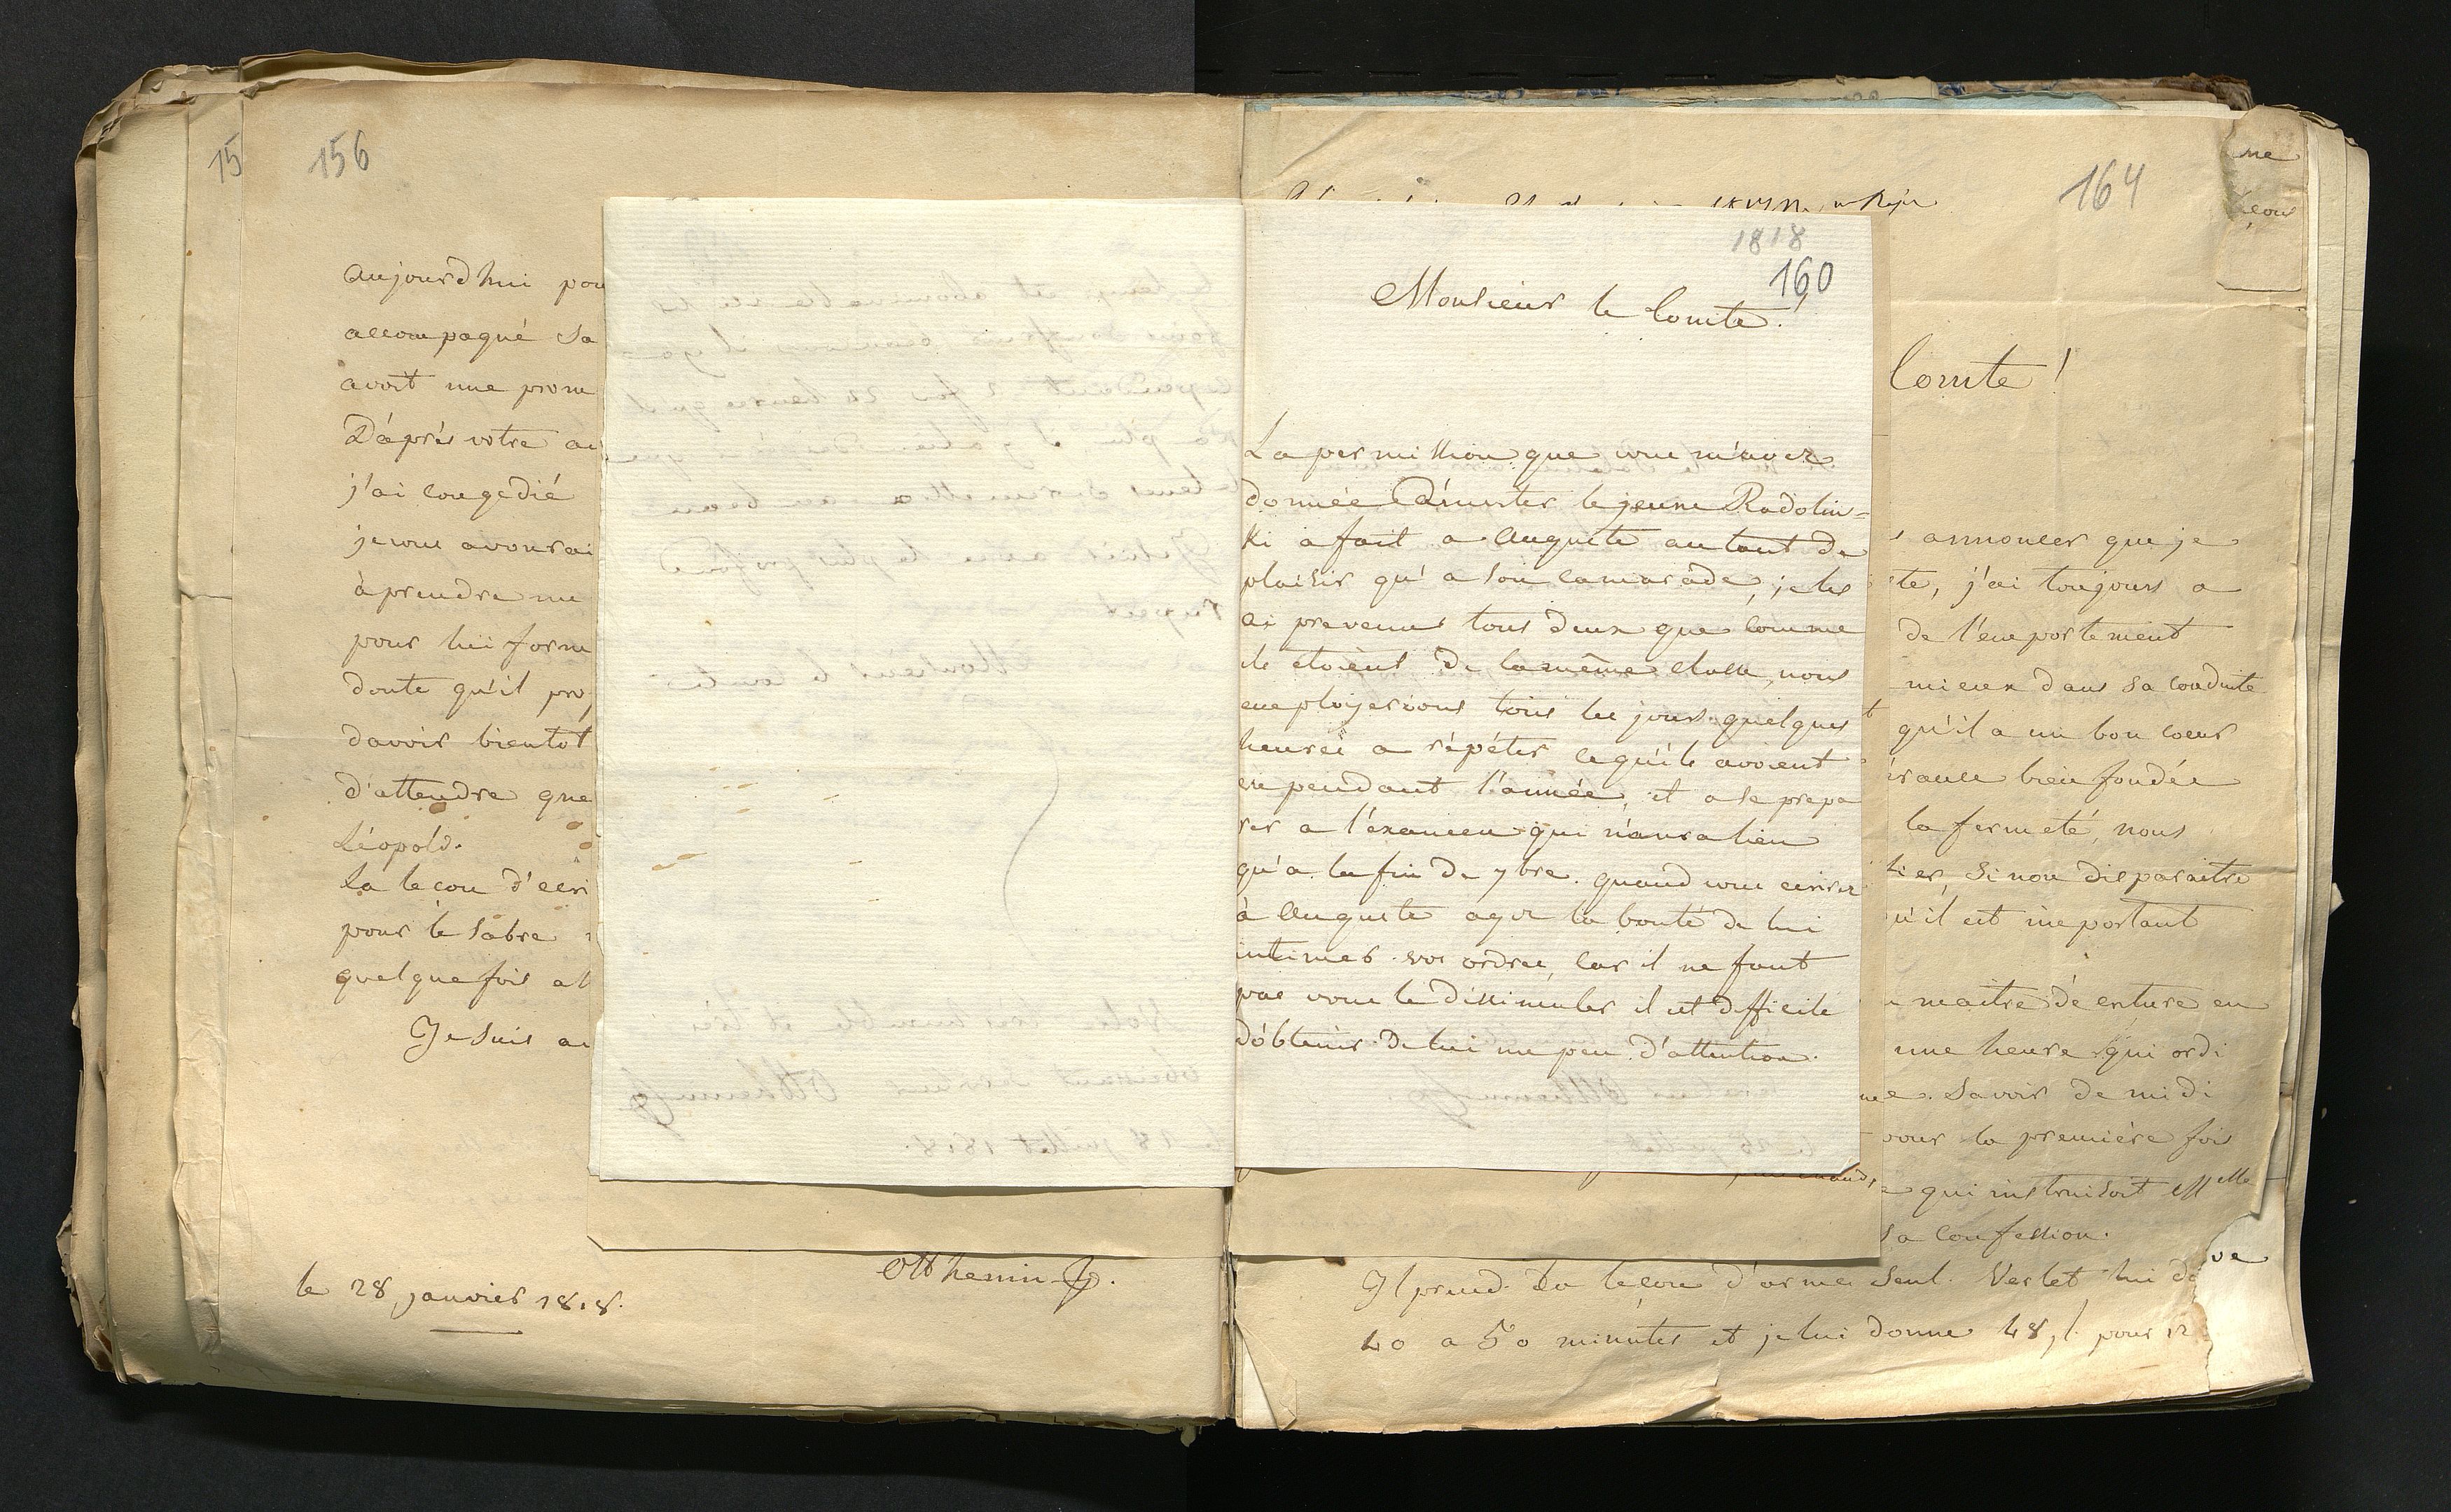 15
156
aujourd'hui pou
accompagné sa
avoit une prom
D'après votre au
j'ai congedié
je vous avourai
à prendre un
pour lui form
doute qu'il pro
davoir bientot
d'attendre que
Léopold.
La leçon d'ecri
pour le sabre
quelque fois a l
Je suis av
Otthenin
le 28 janvier 1818.
1818
160
Monsieur le Comte!
La permission que vous m'avez
donnée d'inviter le jeune Radolin=
ki a fait a Auguste autant de
plaisir qu'a son camarade, je les
ai prevenus tous deux que comme
ils étoient de la même classe, nous
employerions tous les jours quelques
heures a répéter ce qu'ils avoient
vu pendant l'année, et a se prepa
rer a l'examen qui n'aura lieu
qu'a la fin de 7bre. quand vous ecrirez
à Auguste ayez la bonté de lui
intimer vos ordres, car il ne faut
pas vous le dissimuler il est difficile
d'obtenir de lui un peu d'attention.
164
Comte!
annoncer que je
te, j'ai toujours a
de l'emportement
mieux dans sa conduite
qu'il a un bon coeur
érance bien fondée
la fermeté, nous
tier, sinon disparaitre
qu'il est important
maitre d'écriture en
une heure qui ordi
ne. Savoir de midi
pour la première fois
qui instruisoit Melle
sa confession.
Il prend la leçon d'armes seul. Verlet lui do
40 a 50 minutes et je lui donne 48, l. pour 12